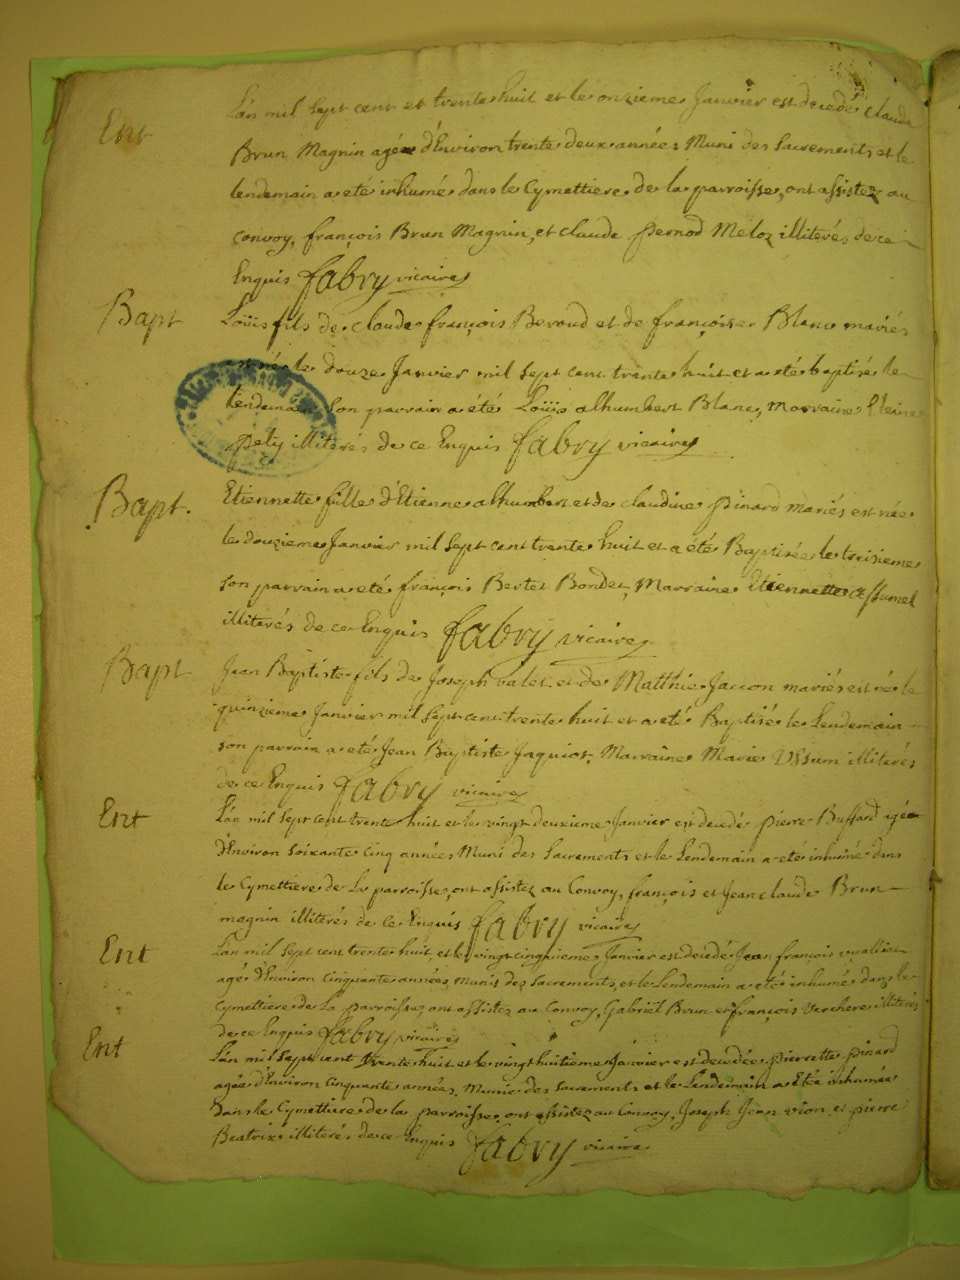 Ent
L'an mil sept cent et trente huit et le onzieme Janvier est decedé claude
Brun Magnin agée d'Environ trente deux années Muni des Sacrements et le
lendemain a eté inhumé dans le Cymettiere de la parroisse, ont assistez au
convoy, françois Brun Magnin, et claude pernod Meloz illiterés de ce
Enquis fabry vicaire
Bapt
Loüis fils de claude françois Beroud et de françoise Blanc mariés
est né le douze Janvier mil sept cent trente huit et a eté baptisé le
lendemain son parrain a eté Loüis alhumbert Blanc, Marraine
illiterés de ce Enquis fabry vicaire
Bapt.
Etiennette fille d'Etienne alhumbert et de claudine pinard mariés est née
le douzieme Janvier mil sept cent trente huit et a eté Baptisée le treisieme
son parrain a eté françois Bertet Bondet, Marraine Etiennette
illiterés de ce Enquis fabry vicaire
Bapt
Jean Baptiste fils de Joseph valet et de Matthie Jacon mariés est né le
quinzieme Janvier mil sept cent trente huit et a eté Baptisé le Lendemain
son parrain a eté Jean Baptiste Jaquiot. Marraine Marie illiterés
de ce Enquis fabry vicaire
Ent
L'an mil sept cent trente huit et le vingt deuxieme Janvier est decedé pierre Buffard agée
d'Environ soixante cinq années Muni des Sacrements et le Lendemain a eté inhumé dans
le Cymettiere de La parroisse, ont assistez au Convoy, françois et Jean claude Brun
magnin illiterés de ce Enquis fabry vicaire
Ent
L'an mil sept cent trente huit, et le vingt cinquieme Janvier est decedé Jean françois vuallier
agé d'Environ cinquante années, munis des sacrements, et le Lendemain a eté inhumé dans le
Cymettiere de La parroisse, ont assistez au Convoy, Gabriel Brun et françois Verchere illiterés
de ce Enquis fabry vicaire
Ent
L'an mil sept cent trente huit et le vingt huitieme Janvier est decedée pierrette pinard
agée d'Environ cinquante années, Munie des sacrements et le Lendemain a Eté inhumée
dans le Cymettiere de la parroisse, ont assistez au Convoy, Joseph Jean vion et pierre
Beatrix illiterés de ce Enquis fabry vicaire